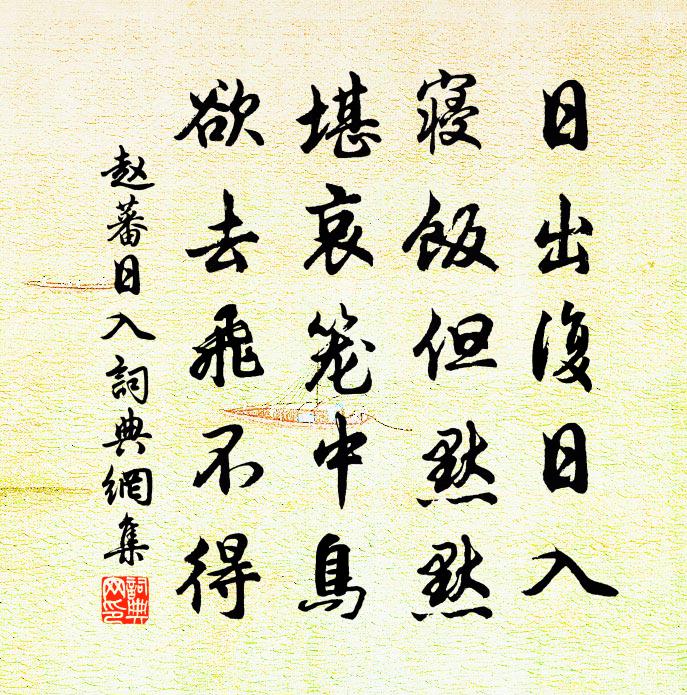 日出復日入
寝飯但默默
堪哀笼中鳥
欲去飛不得
赵蕃日入詞典網集
詞典网印